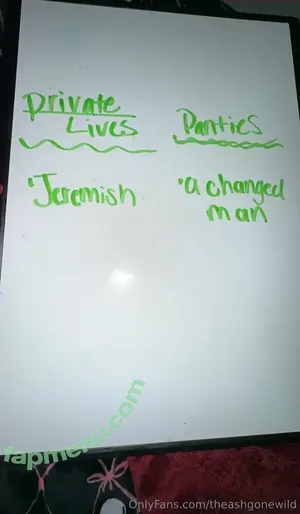 Private Lives
Panties
'Jeremish
'a changed man
fapmenu.com
OnlyFans.com/theashgonewild